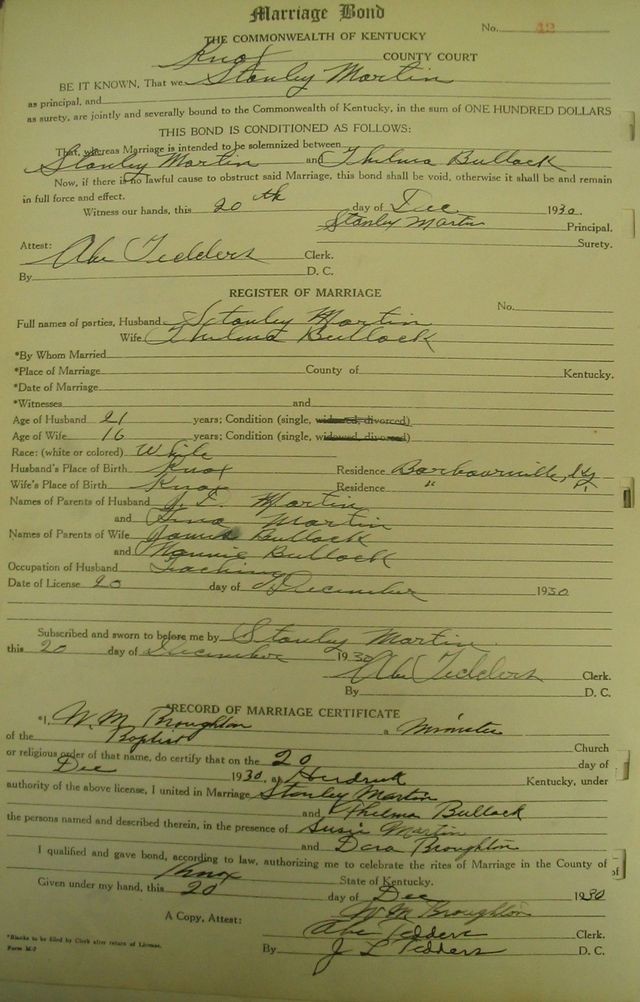 Marriage Bond
No. 42
THE COMMONWEALTH OF KENTUCKY
Knox COUNTY COURT
BE IT KNOWN, That we Stanley Martin
as principal, and
as surety, are jointly and severally bound to the Commonwealth of Kentucky, in the sum of ONE HUNDRED DOLLARS
THIS BOND IS CONDITIONED AS FOLLOWS:
That, whereas Marriage is intended to be solemnized between
Stanley Martin and Thelma Bullock
Now, if there is no lawful cause to obstruct said Marriage, this bond shall be void, otherwise it shall be and remain
in full force and effect.
Witness our hands, this 20th day of Dec. 1930.
Stanley Martin Principal.
Surety.
Attest:
Abe Tedders Clerk.
By D. C.
REGISTER OF MARRIAGE
No.
Full names of parties, Husband Stanley Martin
Wife Thelma Bullock
*By Whom Married
*Place of Marriage County of Kentucky.
*Date of Marriage
*Witnesses and
Age of Husband 21 years; Condition (single, widowed, divorced)
Age of Wife 16 years; Condition (single, widowed, divorced)
Race: (white or colored) White
Husband's Place of Birth Knox Residence Barbourville, Ky
Wife's Place of Birth Knox Residence "
Names of Parents of Husband Martin
and Martin
Names of Parents of Wife James Bullock
and Nannie Bullock
Occupation of Husband Teaching
Date of License 20 day of December 1930
Subscribed and sworn to before me by Stanley Martin
this 20 day of December 1930
Abe Tedders Clerk.
By D. C.
*RECORD OF MARRIAGE CERTIFICATE
*I, W. M. Broughton a Minister
of the Baptist Church
or religious order of that name, do certify that on the 20 day of
Dec 1930, at Kentucky, under
authority of the above license, I united in Marriage Stanley Martin
and Thelma Bullock
the persons named and described therein, in the presence of Susie Martin
and Dora Broughton
I qualified and gave bond, according to law, authorizing me to celebrate the rites of Marriage in the County of
Knox State of Kentucky.
Given under my hand, this 20 day of Dec 1930
W M Broughton
A Copy, Attest: Abe Tedders Clerk.
By J L Tedders D. C.
*Blanks to be filled by Clerk after return of License.
Form M-7